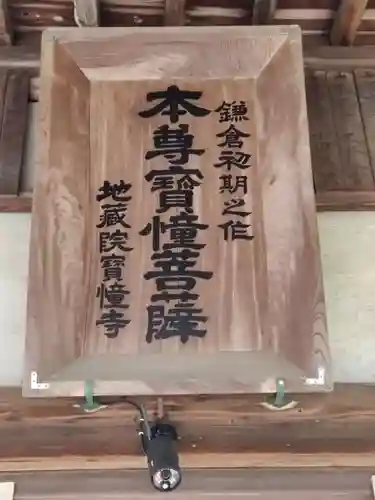 鎌倉初期之作
本尊寶憧菩薩
地蔵院寶憧寺